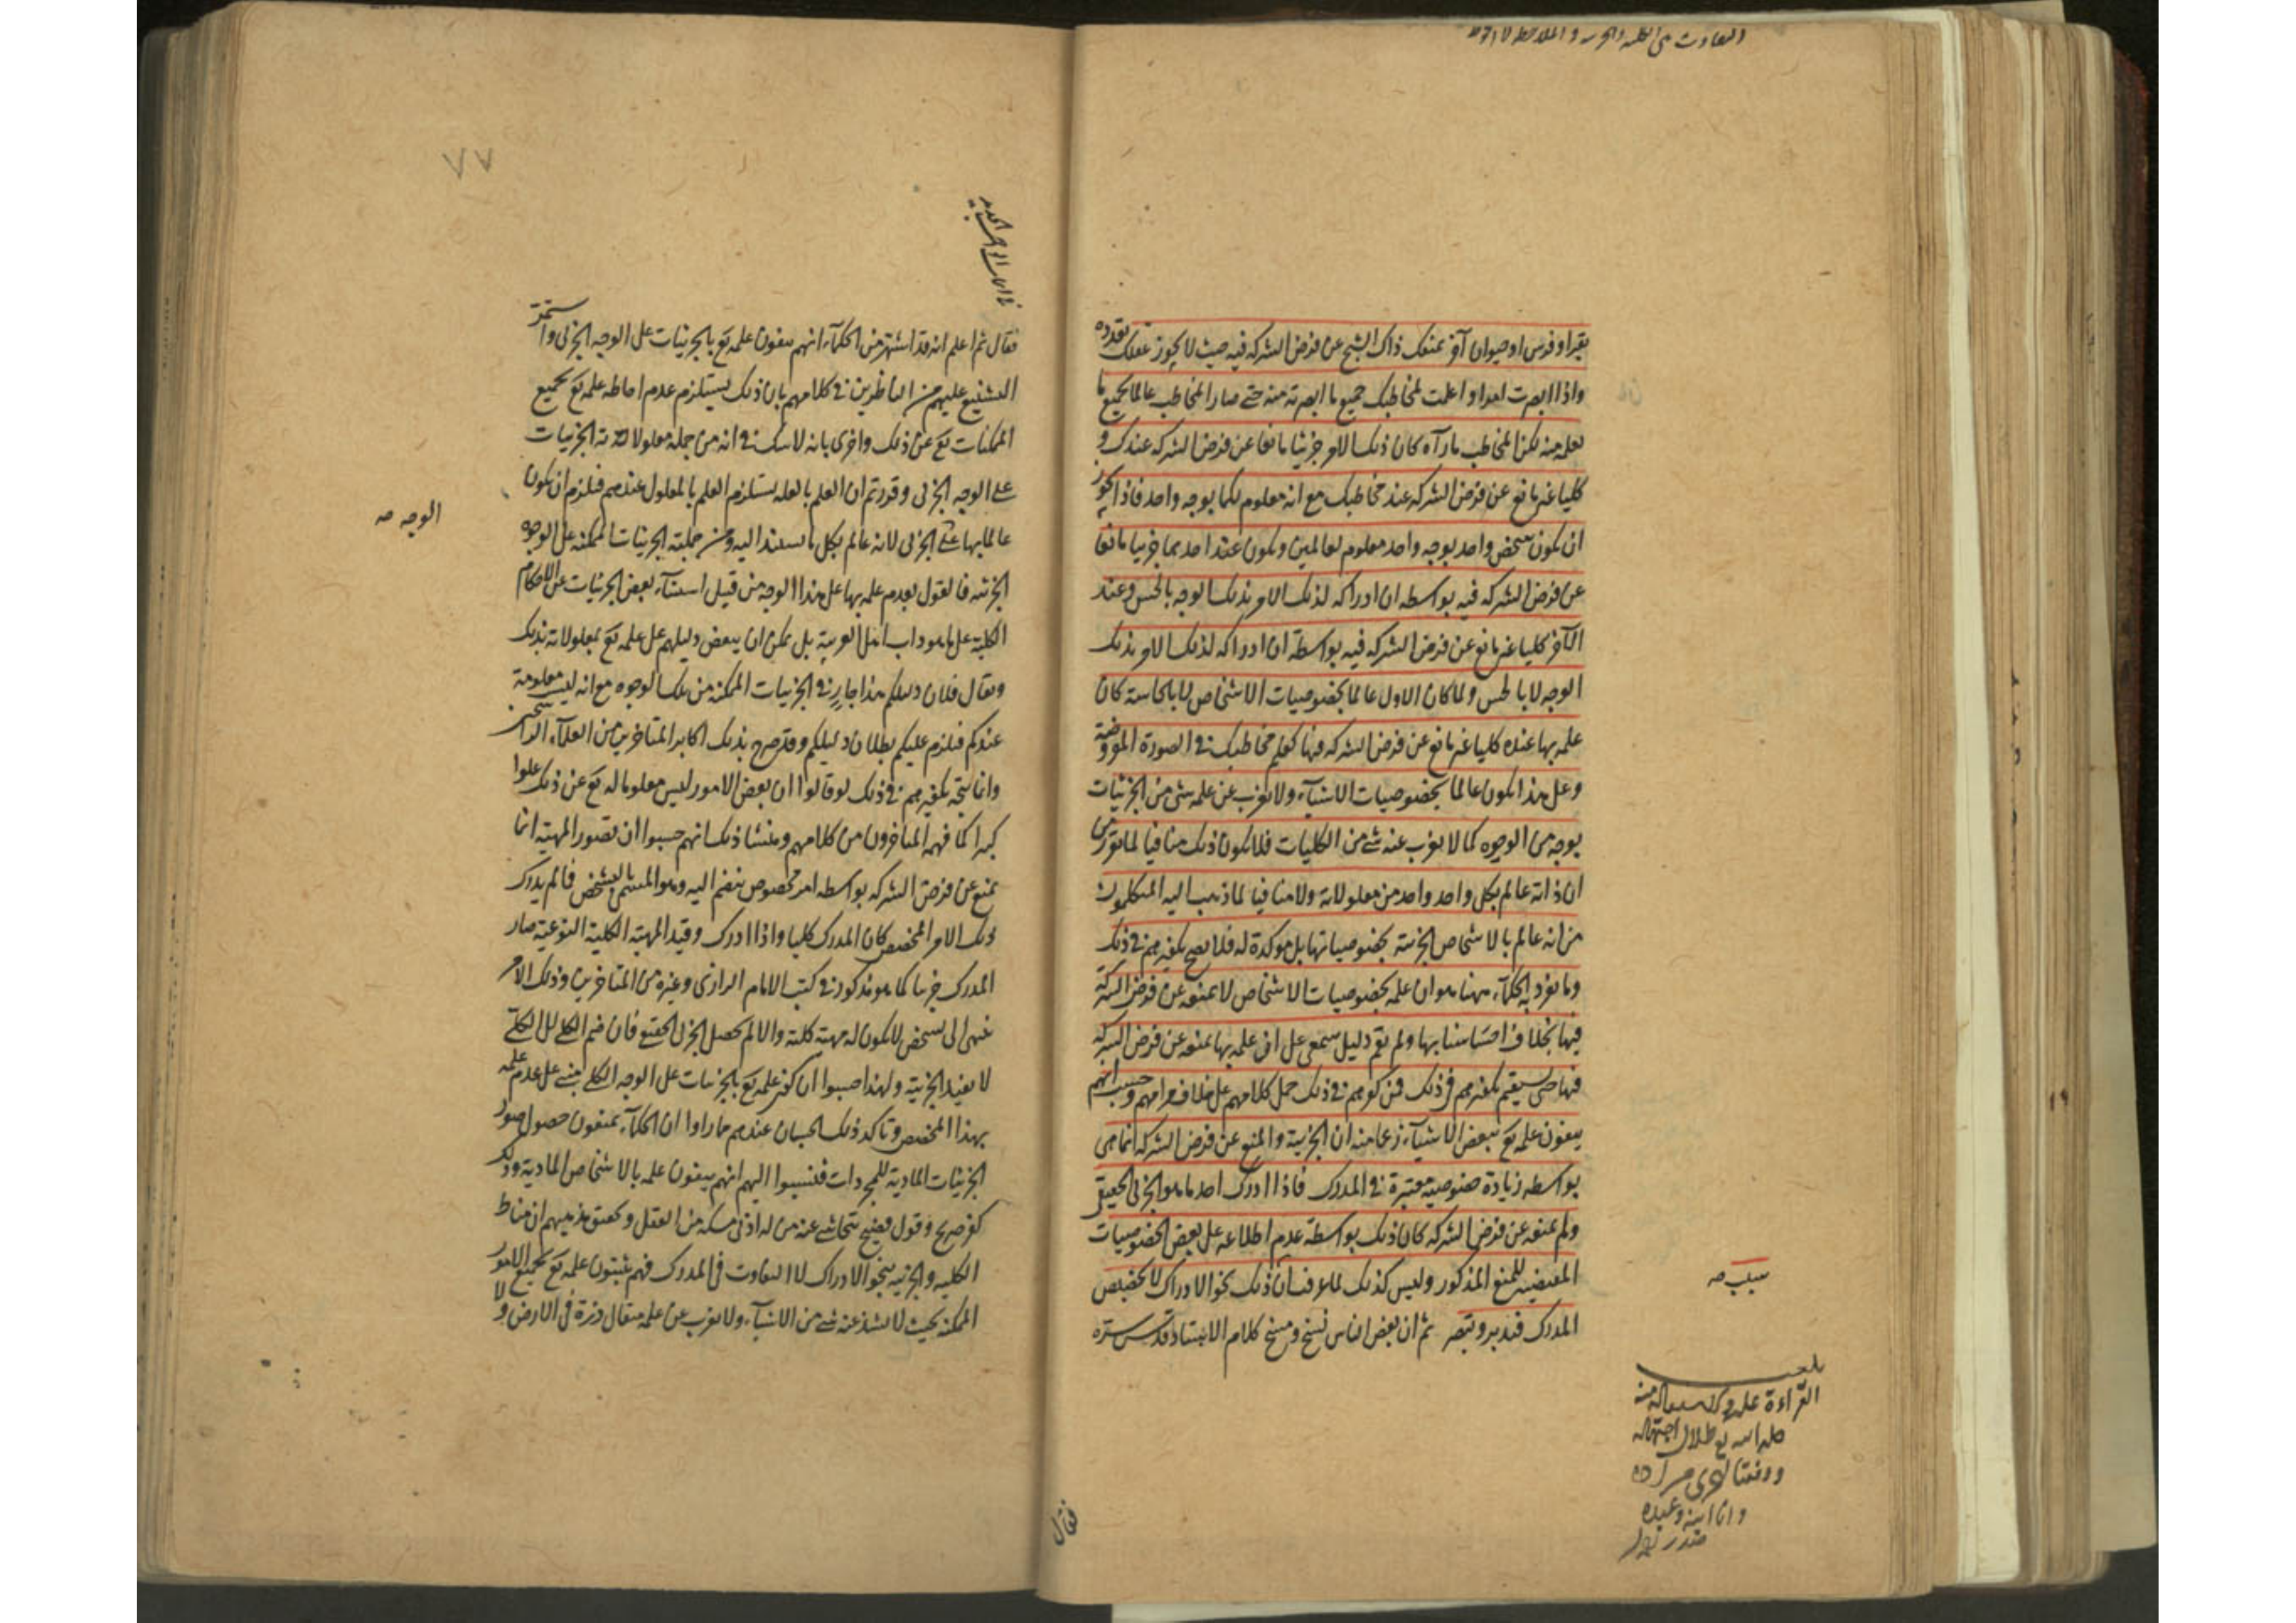 بقرا او فرس او حيوان آخر يمنعك ذاك الشبح عن فرض الشركة فيه حيث لا يجوز عقلك تعدده
واذا ابصرت احدا واعلمت لمخاطبك جميع ما ابصرته منه حتى صار المخاطب عالما بجميع ما
تعلمه منه لكن المخاطب ما رآه كان ذلك الامر جزئيا مانعا عن فرض الشركة عندك و
كليا غير مانع عن فرض الشركة عند مخاطبك مع انه معلوم لكما بوجه واحد فاذا يجوز
ان يكون شخص واحد بوجه واحد معلوم لعالمين ويكون عند احدهما جزئيا مانعا
عن فرض الشركة فيه بواسطة ان ادراكه لذلك الامر بذلك الوجه بالحس وعند
الآخر كليا غير مانع عن فرض الشركة فيه بواسطة ان ادراكه لذلك الامر بذلك
الوجه لا بالحس ولما كان الاول عالما بخصوصيات الاشخاص لا بالحاسة كان
علمه بها عنده كليا غير مانع عن فرض الشركة فيها كعلم مخاطبك في الصورة المفروضة
وعلى هذا يكون عالما بخصوصيات الاشياء ولا يعزب عن علمه شئ من الجزئيات
بوجه من الوجوه كما لا يعزب عنه شئ من الكليات فلا يكون ذلك منافيا لما تقرر من
ان ذاته عالم بكل واحد واحد من معلولاته ولا منافيا لما ذهب اليه المتكلمون
من انه عالم بالاشخاص الجزئية بخصوصياتها بل موكدة له فلا يصح تكفيرهم في ذلك
وما تفرد به الحكماء ههنا هو ان علمه بخصوصيات الاشخاص لا يمنعه عن فرض الشركة
فيها بخلاف احساسنا بها ولم يقم دليل سمعي على ان علمه بها يمنعه عن فرض الشركة
فيها حتى يستقيم تكفيرهم في ذلك فمن كفرهم في ذلك حمل كلامهم على خلاف مرامهم وحسب انهم
ينفون علمه تع ببعض الاشياء زعما منه ان الجزئية والمنع عن فرض الشركة انما هي
بواسطة زيادة خصوصية معتبرة في المدرك فاذا ادرك احد ما هو الجزئي الحقيقي
ولم يمنعه عن فرض الشركة كان ذلك بواسطة عدم اطلاعه على بعض الخصوصيات
المقتضية للمنع المذكور وليس كذلك لما عرفت ان ذلك نحو الادراك لا تخصيص
المدرك فتدبر وتبصر ثم ان بعض الناس نسخ ومسخ كلام الاستاذ قدس سره
بلغت
القراءة
فقال
٧٧
فقال ثم اعلم انه قد اشتهر من الحكماء انهم ينفون علمه تع بالجزئيات على الوجه الجزئي واستمر
التشنيع عليهم من الناظرين في كلامهم بان ذلك يستلزم عدم احاطة علمه تع بجميع
الممكنات تع عن ذلك واخرى بانه لا شك في انه من جملة معلولاته الجزئيات
على الوجه الجزئي وقررتم ان العلم بالعلة يستلزم العلم بالمعلول عندهم فيلزم ان يكون
عالما بها على الجزئي لانه عالم بكل ما يستند اليه ومن جملته الجزئيات الممكنة على الوجوه
الوجه صح
الجزئية فالقول بعدم علمه بها على هذا الوجه من قبيل استثناء بعض الجزئيات عن الاحكام
الكلية على ما هو داب اهل العربية بل يمكن ان ينقض دليلهم على علمه تع بمعلولاته بذلك
ويقال فلان دليلكم هذا جار في الجزئيات الممكنة من تلك الوجوه مع انه ليست معلومة
عندكم فيلزم عليكم بطلان دليلكم وقد صرح بذلك اكابر المتاخرين من العلماء الراسخين
وانما يتجه تكفيرهم في ذلك لو قالوا ان بعض الامور ليس معلوما له تع عن ذلك علوا
كبيرا كما فهمه المتاخرون من كلامهم ومنشا ذلك انهم حسبوا ان تصور المهية انما
يمنع عن فرض الشركة بواسطة امر مخصوص ينضم اليه وهو المسمى بالتشخص فما لم يدرك
ذلك الامر المخصص كان المدرك كليا واذا ادرك وقيد المهية الكلية النوعية صار
المدرك جزئيا كما هو مذكور في كتب الامام الرازي وغيره من المتاخرين وذلك الامر
ينتهي الى تشخص لا يكون له مهية كلية والا لم يحصل الجزئي الحقيقي فان ضم الكلي الى الكلي
لا يفيد الجزئية ولهذا حسبوا ان كون علمه تع بالجزئيات على الوجه الكلي مبني على عدم علمه
بهذا المخصص وتاكد ذلك الحسبان عندهم ما راوا ان الحكماء يمنعون حصول صور
الجزئيات المادية للمجردات فنسبوا اليهم انهم ينفون علمه بالاشخاص المادية وذلك
كفر صريح وقول قبيح يتحاشى عنه من له ادنى مسكة من العقل وتحقيق مذهبهم ان مناط
الكلية والجزئية بنحو الادراك لا التفاوت في المدرك فهم يثبتون علمه تع بجميع الامور
الممكنة بحيث لا يشذ عنه شئ من الاشياء ولا يعزب عن علمه مثقال ذرة في الارض ولا